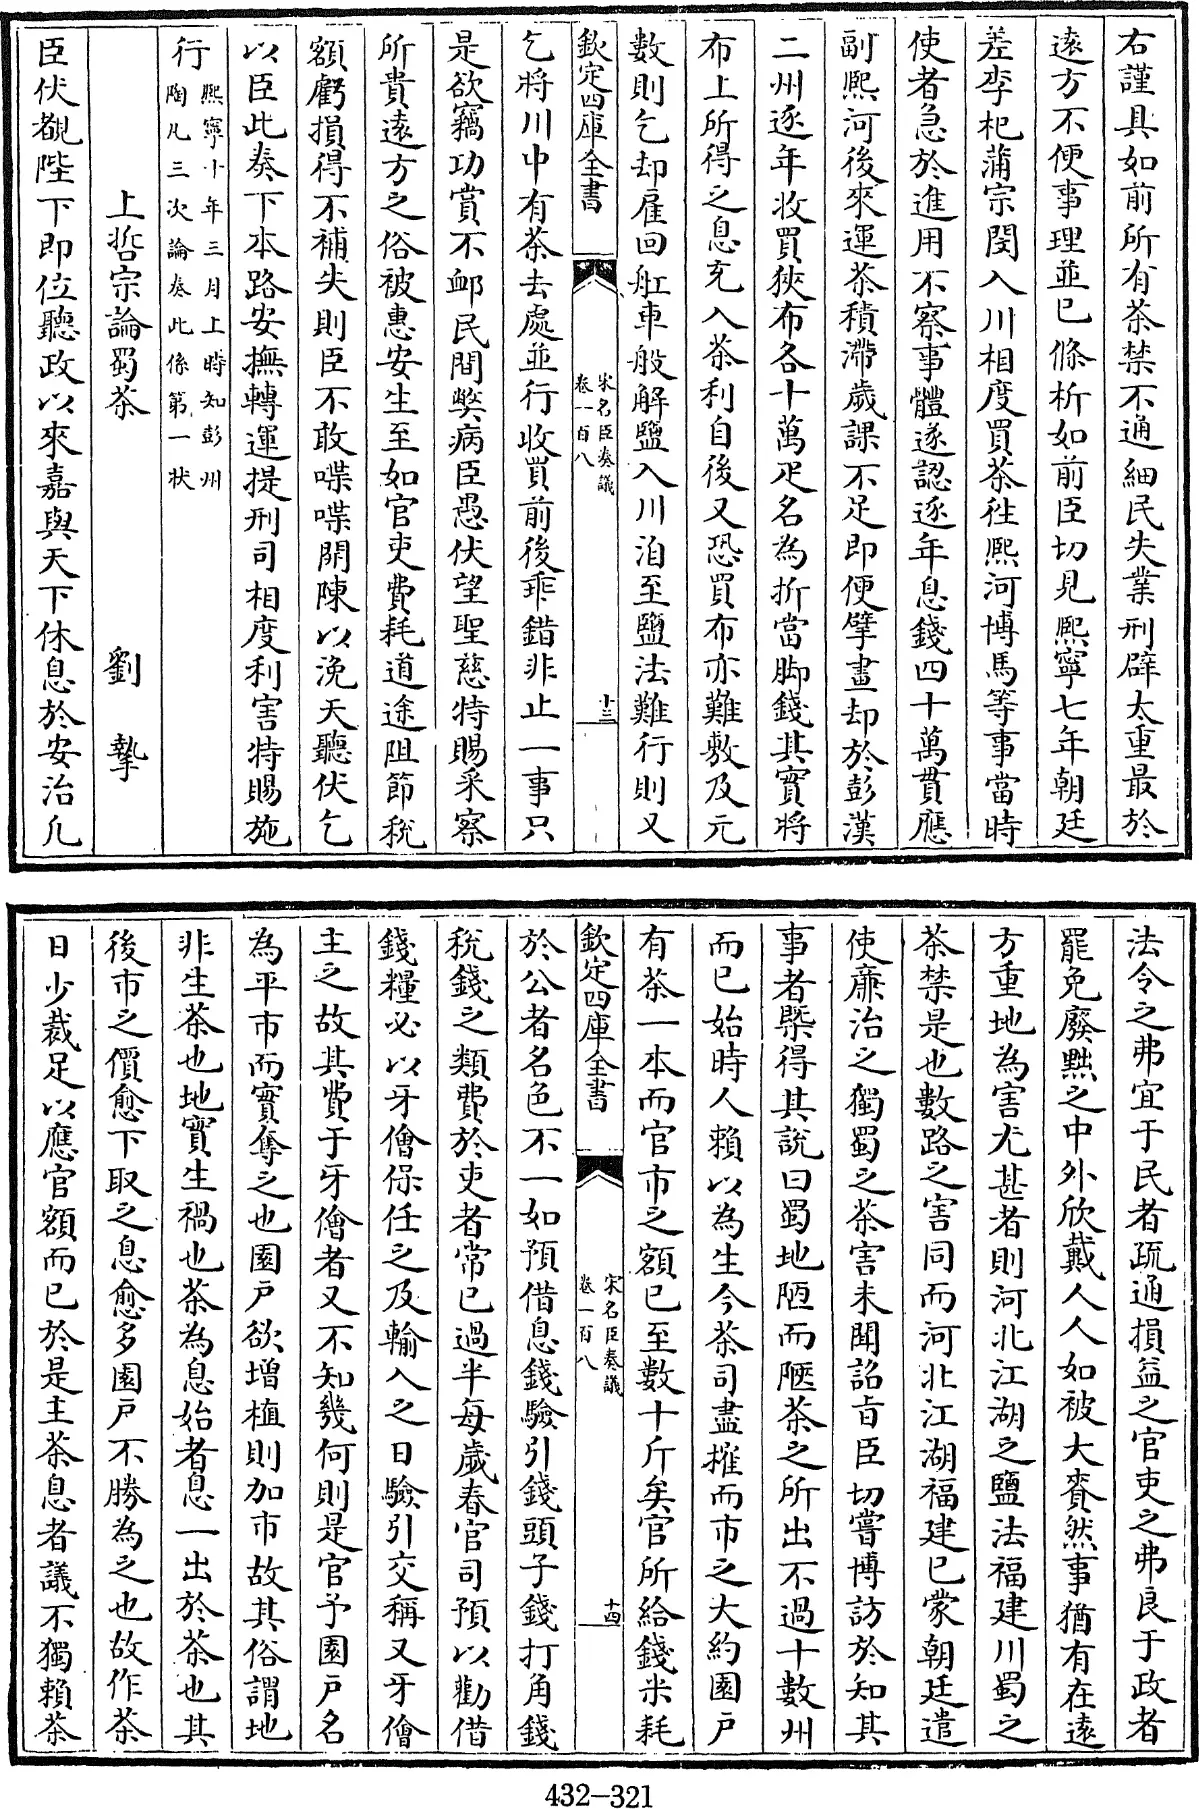 右謹具如前所有茶禁不通細民失業刑辟太重最於
遠方不便事理並已條析如前臣切見熙寧七年朝廷
差李杞蒲宗閔入川相度買茶徃熙河博馬等事當時
使者急於進用不察事體遂認逐年息錢四十萬貫應
副熙河後來運茶積滯歲課不足即便擘畫却於彭漢
二州逐年收買狹布各十萬疋名為折當脚錢其實將
布上所得之息充入茶利自後又恐買布亦難敷及元
數則乞却雇回舡車般解鹽入川洎至鹽法難行則又
欽定四庫全書
宋名臣奏議
卷一百八
十三
乞將川中有茶去處並行收買前後乖錯非止一事只
是欲竊功賞不卹民間獘病臣愚伏望聖慈特賜采察
所貴遠方之俗被惠安生至如官吏費耗道途阻節稅
額虧損得不補失則臣不敢喋喋開陳以浼天聽伏乞
以臣此奏下本路安撫轉運提刑司相度利害特賜施
行
熙寧十年三月上時知彭州
陶凡三次論奏此係第一狀
上哲宗論蜀茶
劉摯
臣伏覩陛下即位聽政以來嘉與天下休息於安治凡
法令之弗宜于民者疏通損益之官吏之弗良于政者
罷免廢黜之中外欣戴人人如被大賚然事猶有在遠
方重地為害尤甚者則河北江湖之鹽法福建川蜀之
茶禁是也數路之害同而河北江湖福建已蒙朝廷遣
使廉治之獨蜀之茶害未聞詔㫖臣切嘗博訪於知其
事者槩得其説曰蜀地陋而陿茶之所出不過十數州
而已始時人賴以為生今茶司盡搉而市之大約園戶
有茶一本而官市之額已至數十斤矣官所給錢米耗
欽定四庫全書
宋名臣奏議
卷一百八
十四
於公者名色不一如預借息錢驗引錢頭子錢打角錢
稅錢之類費於吏者常已過半每歲春官司預以勸借
錢糧必以牙儈保任之及輸入之日驗引交稱又牙儈
主之故其費于牙儈者又不知幾何則是官予園戶名
為平市而實奪之也園戶欲增植則加市故其俗謂地
非生茶也地實生禍也茶為息始者息一出於茶也其
後市之價愈下取之息愈多園戶不勝為之也故作茶
日少裁足以應官額而已於是主茶息者議不獨賴茶
432-321